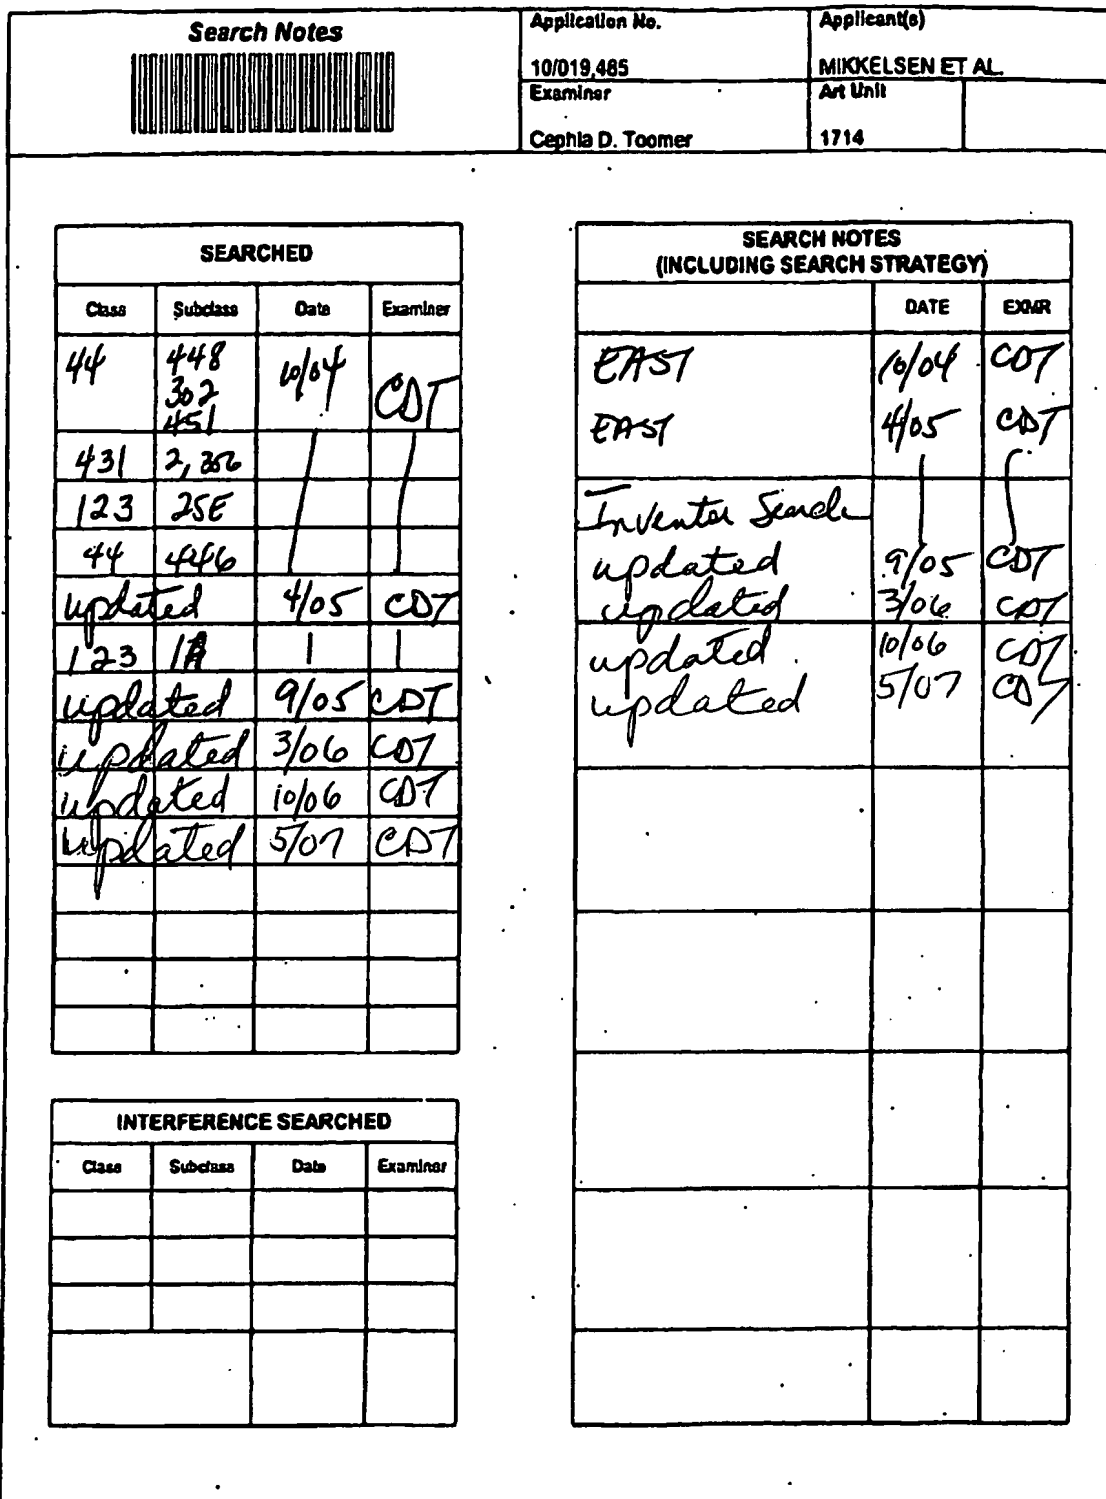 Search Notes
Application No.
Applicant(s)
10/019,485
MIKKELSEN ET AL.
Examiner
Art Unit
Cephia D. Toomer
1714
SEARCHED
Class Subclass Date Examiner
44 448 10/04 CDT
302
451
431 2, 356
123 25E
44 446
updated 4/05 CDT
123 1A
updated 9/05 CDT
updated 3/06 CDT
updated 10/06 CDT
updated 5/07 CDT
INTERFERENCE SEARCHED
Class Subclass Date Examiner
SEARCH NOTES
(INCLUDING SEARCH STRATEGY)
DATE EXMR
EAST 10/04 CDT
EAST 4/05 CDT
Inventor Search
updated 9/05 CDT
updated 3/06 CDT
updated 10/06 CDT
updated 5/07 CDT